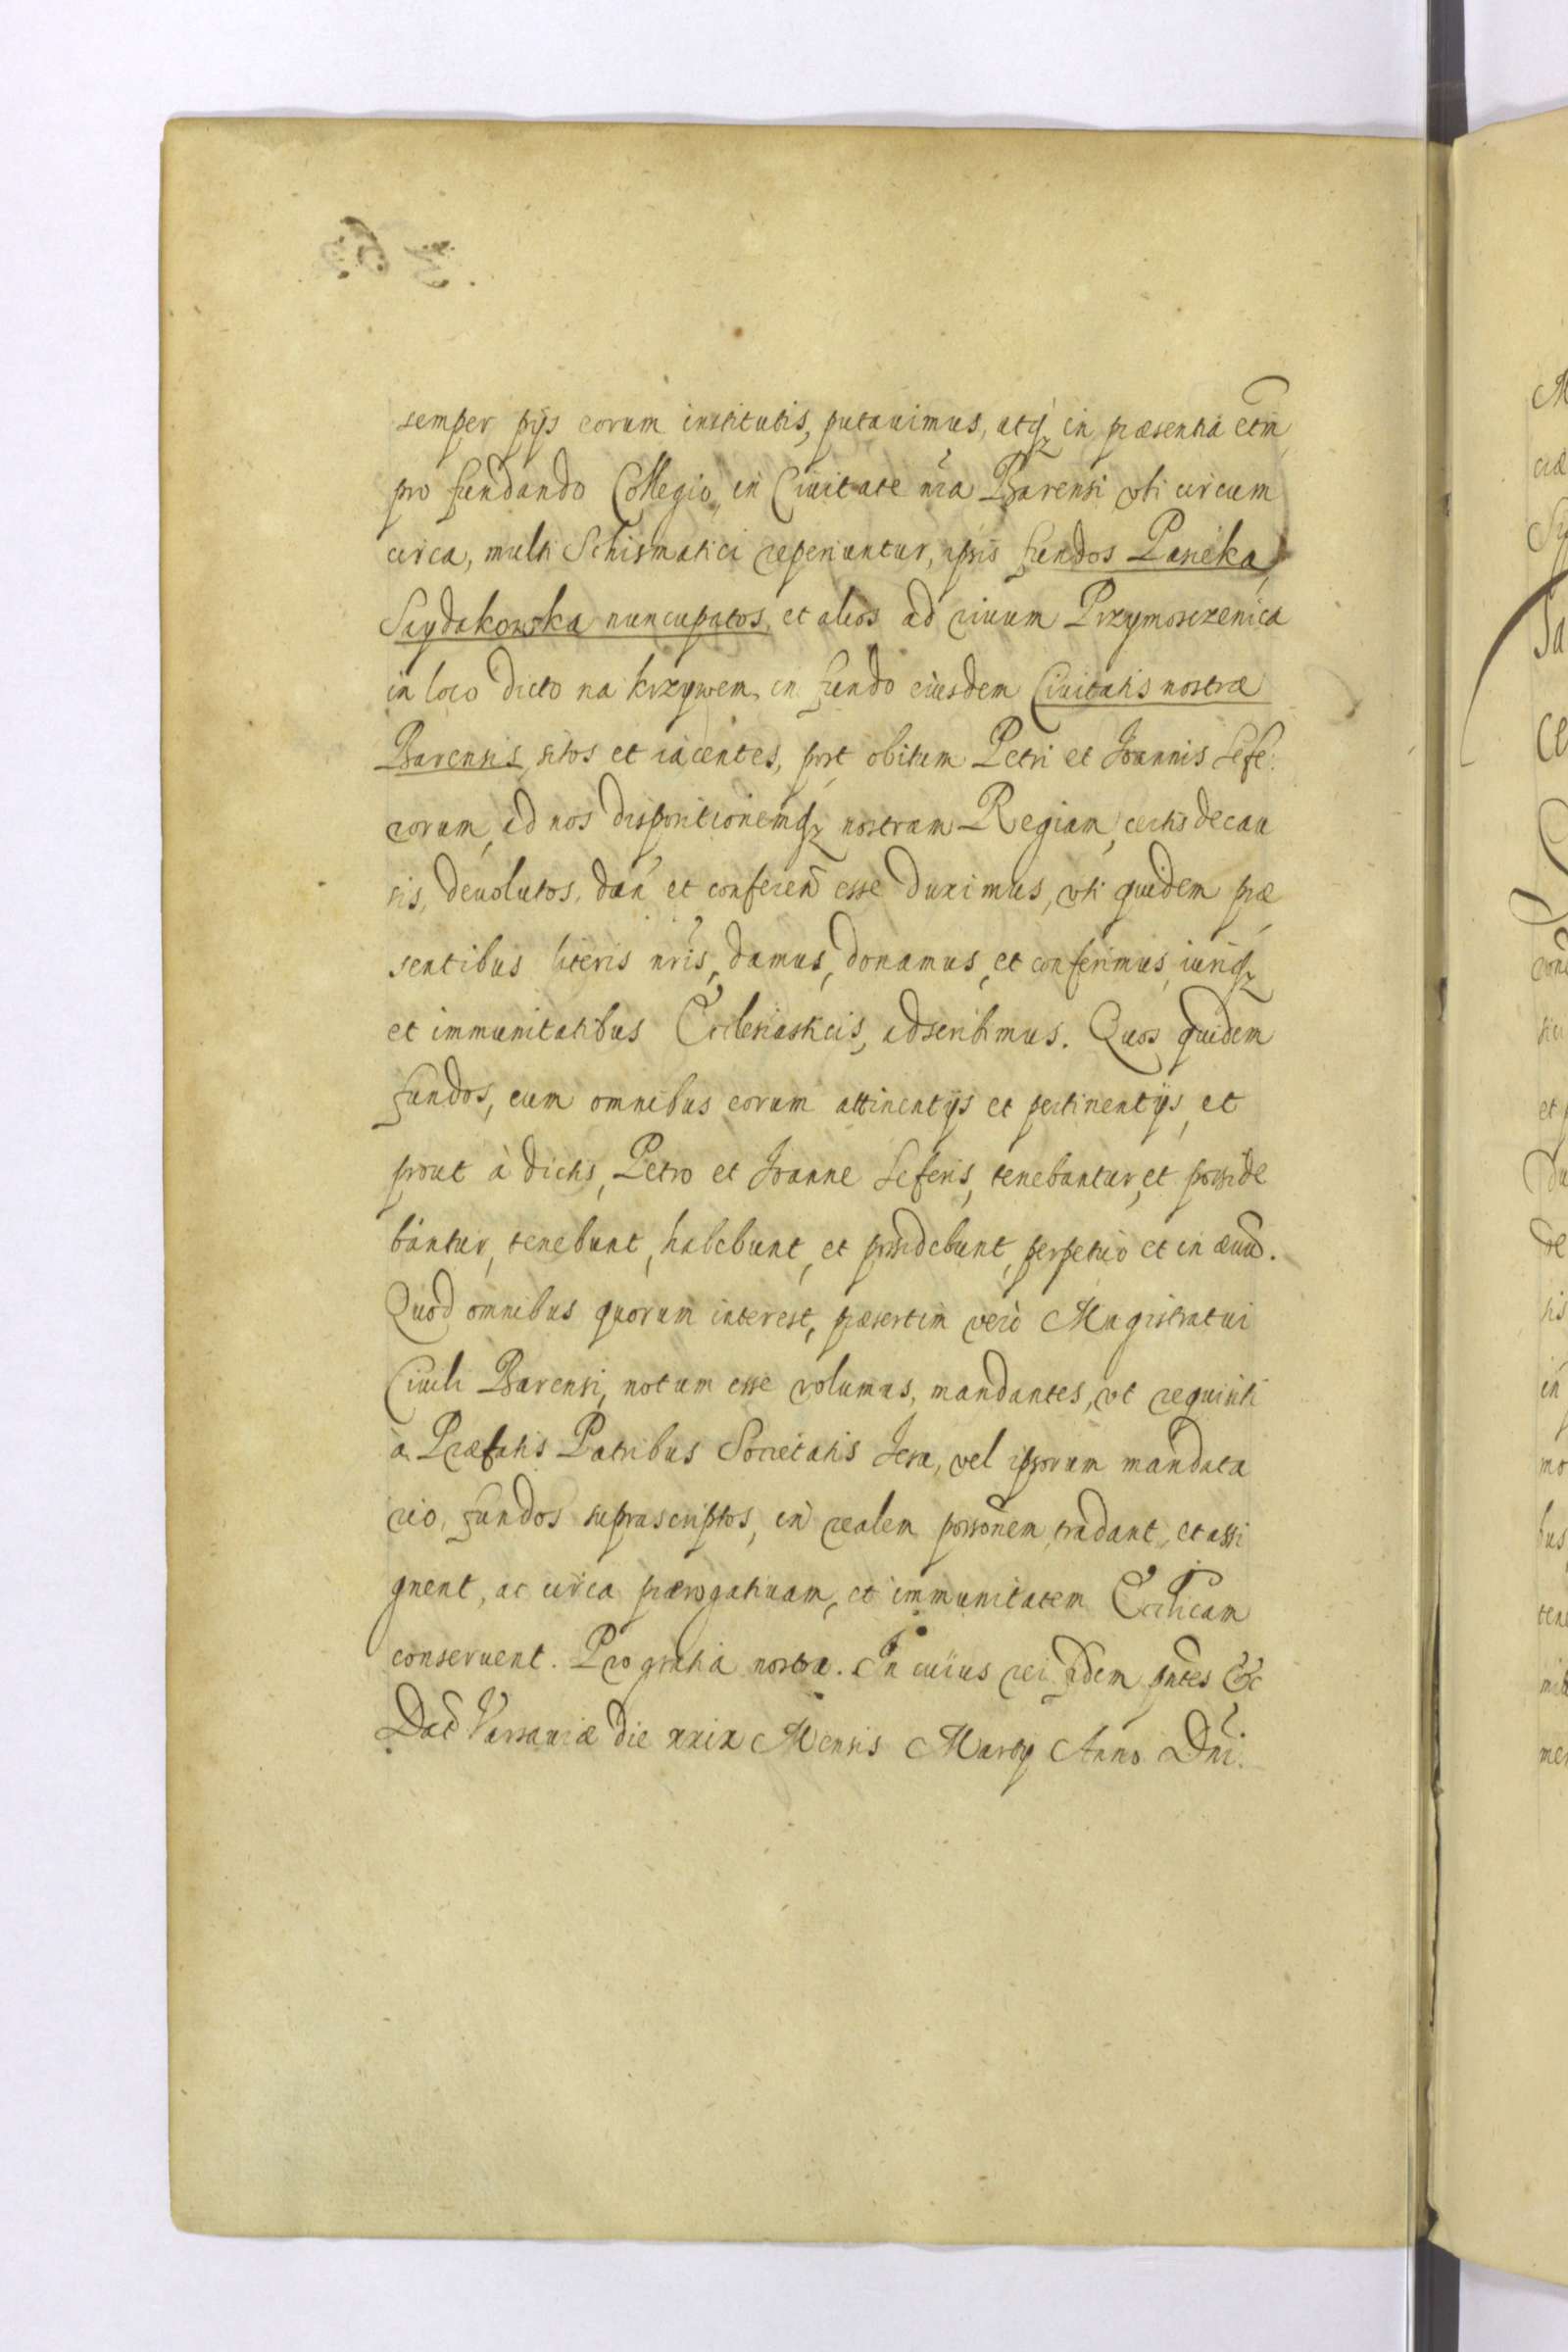 semper pijs eorum institutis, putauimus, atq́ in præsentia etm̃
pro fundando Collegio, in Ciuitate nr̃a Barensi vbi circum
circa, multi Schismatici reperiuntur, ipsis fundos Paneka
Saydakowska nuncupatos, et alios ad riuum Przymosczenica
in loco dicto na krzywem, in fundo eiusdem Ciuitatis nostræ
Barensis, sitos et iacentes, post obitum Petri et Joannis Sefe
rorum, ad nos dispositionemq́ nostram Regiam, certis de cau
sis, deuolutos, dañ et confereñ esse duximus, vti quidem præ
sentibus literis nr̃is, damus, donamus, et conferimus, iuriq́
et immunitatibus Ecclesiasticis, adscribimus. Quos quidem
fundos, cum omnibus eorum attinentijs et pertinentijs, et
prout à dictis, Petro et Joanne Seferis, tenebantur, et posside
bantur, tenebunt, habebunt, et possidebunt, perpetuò et in æuũ.
Quod omnibus quorum interest, præsertim verò Magistratui
Ciuili Barensi, notum esse volumus, mandantes, vt requisiti
a Præfatis Patribus Societatis Jesu, vel ipsorum mandata
rio, fundos suprascriptos, in realem possõnem, tradant, et assi
gnent, ac circa prærogatiuam, et immunitatem Ecclĩcam
conseruent. Pro gratia nostra. In cuius rei fidem pñtes &c
Dat̃ Varsauiæ die xxix Mensis Martij Anno Dñi.